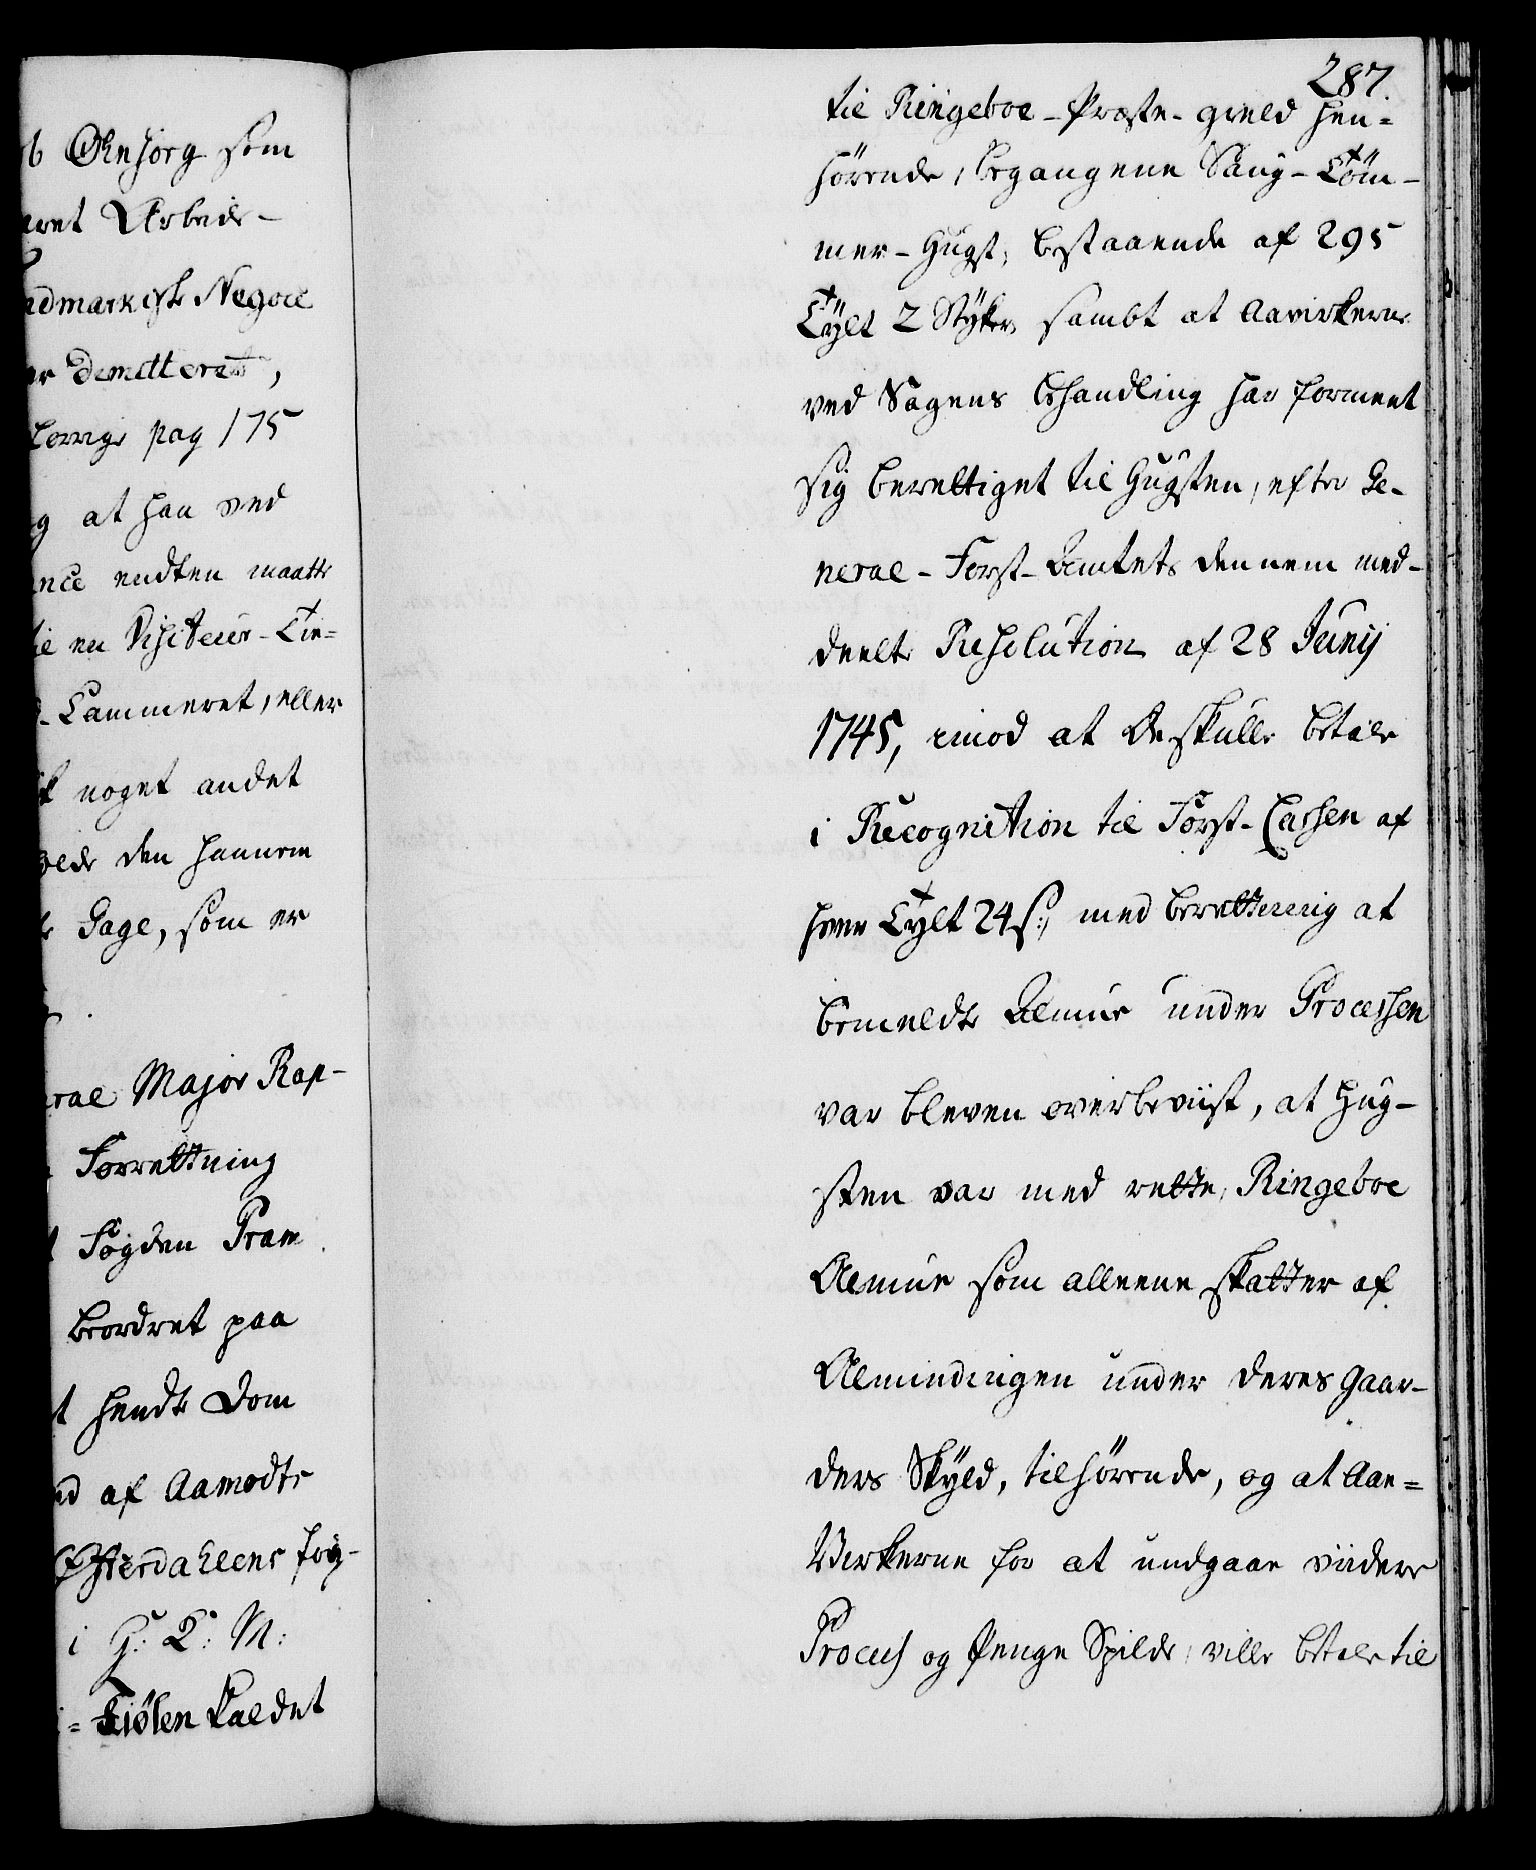 Øensorg som
Arbeide-
admarkiske Negoce
demitteret,
forrige pag 175
at han ved
endten maatte
en Visiteur-Tie=
Cammeret, eller
noget andet
den hannem
Gage, som er
Major Rap-
Forrettning
Fogden Pram
beordret paa
hendte Dom
af Aamodts
Østerdalens fog-
i G: L: M:
Kiølen kaldet
287.
til Ringeboe-Præste-gield hen=
hørende, begangene Saug-Tøm-
mer-Hugst, bestaaende af 295
Tylt 2 Stÿker, sambt at Aavirkerne
ved Sagens behandling har formeent
sig berettiget til Hugsten, efter Ge-
neral-Forst-Amtets dennem med-
deelte Resolution af 28 Junij
1745, imod at De skulle betale
i Recognition til Forst-Cassen af
hver Tylt 24 s:, med beretning at
bemeldte Almue under Processen
var bleven overbeviist, at Hug-
sten var med rette, Ringeboe
Almue som alleene skatter af
Almindingen under deres Gaar-
ders Skyld, tilhørende, og at Aae=
Virkerne for at undgaae viidere
Process og Penge Spilde, ville betale til